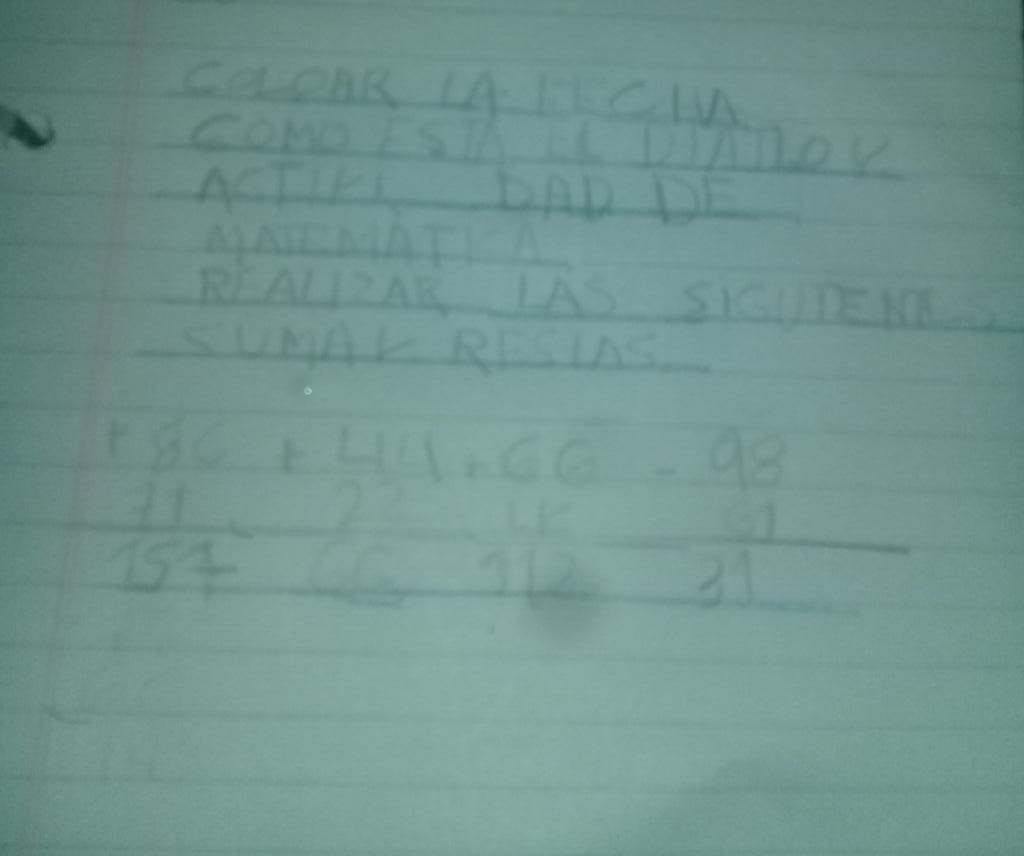 COLOAR LA FECHA
COMO ESTA EL DIA HOY
DAD DE
MATEMATICA
REALIZAR LAS SIGUIENTES
SUMA Y RESTAS
+ 86 + 44 + 66 - 98
71 22 61
157 66 112 31